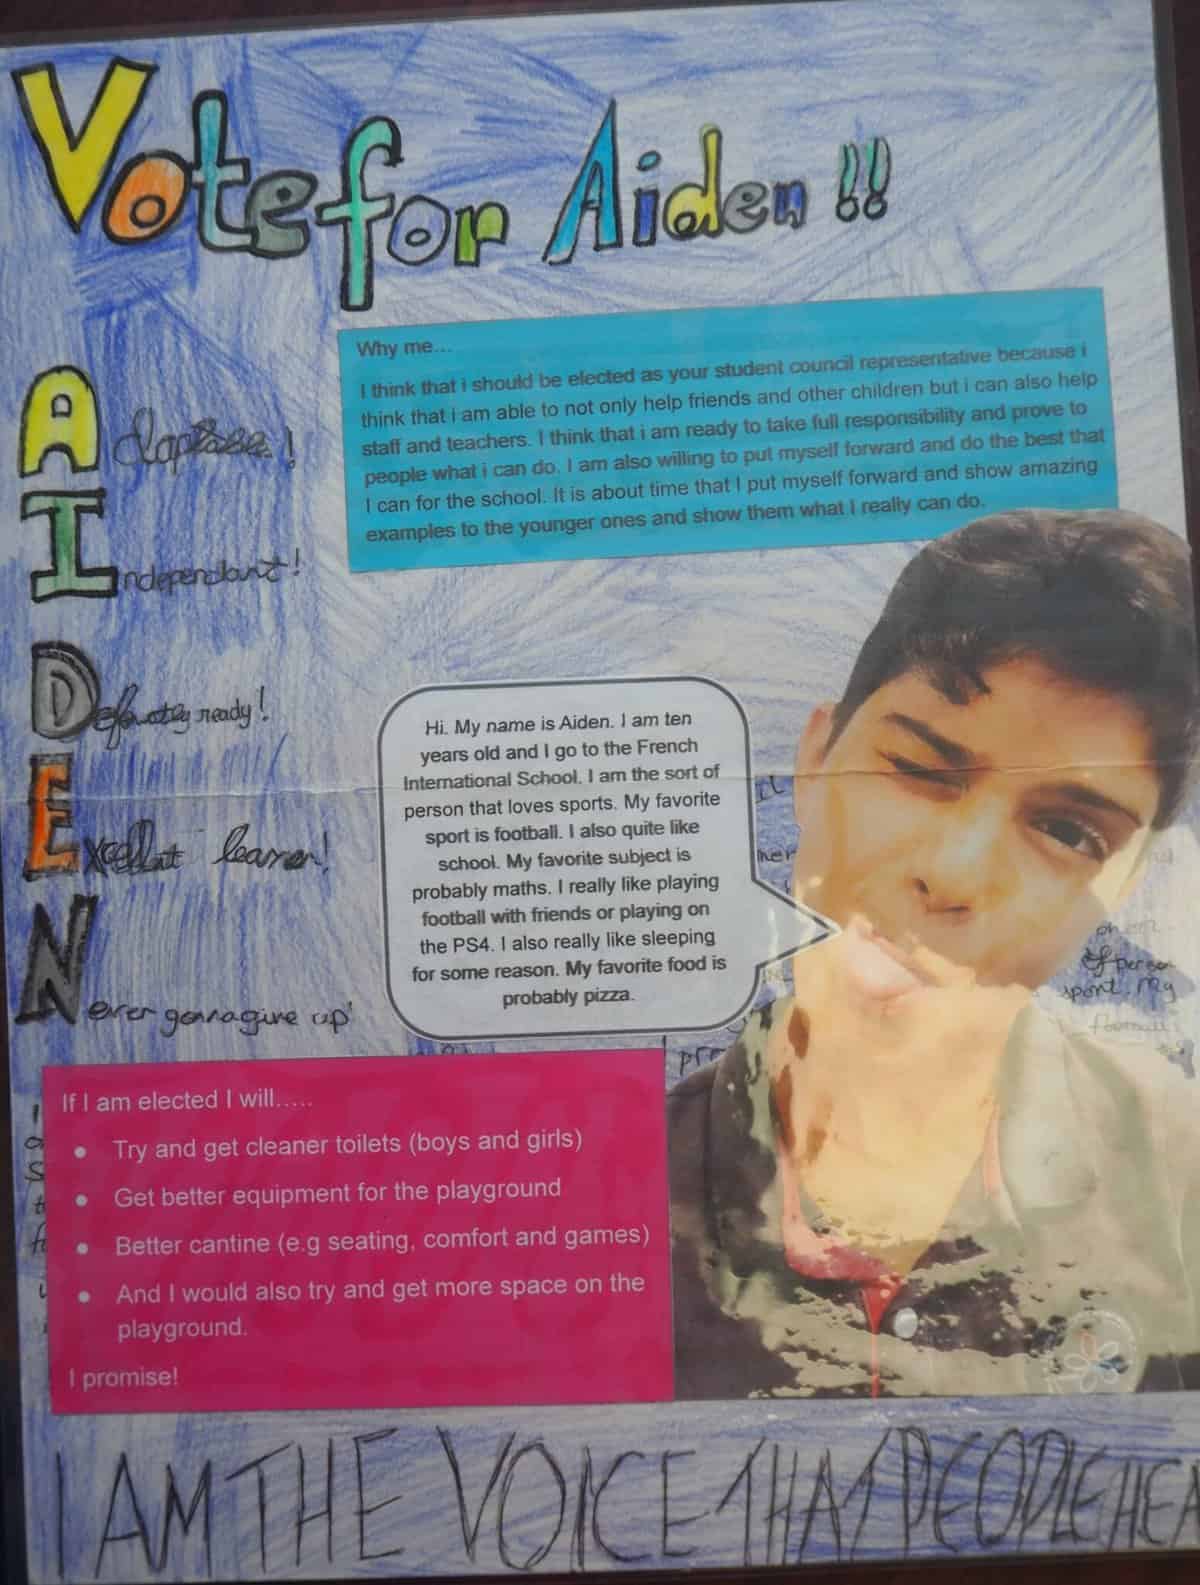 Vote for Aiden !!
Why me...
I think that i should be elected as your student council representative because i
think that i am able to not only help friends and other children but i can also help
staff and teachers. I think that i am ready to take full responsibility and prove to
people what i can do. I am also willing to put myself forward and do the best that
I can for the school. It is about time that I put myself forward and show amazing
examples to the younger ones and show them what I really can do.
Adaptable!
Independant!
Definetely ready!
Excellent learner!
Never gonna give up!
Hi. My name is Aiden. I am ten
years old and I go to the French
International School. I am the sort of
person that loves sports. My favorite
sport is football. I also quite like
school. My favorite subject is
probably maths. I really like playing
football with friends or playing on
the PS4. I also really like sleeping
for some reason. My favorite food is
probably pizza.
of person
sport. My
football
If I am elected I will.....
● Try and get cleaner toilets (boys and girls)
● Get better equipment for the playground
● Better cantine (e.g seating, comfort and games)
● And I would also try and get more space on the
playground.
I promise!
I AM THE VOICE THAT PEOPLE HEA